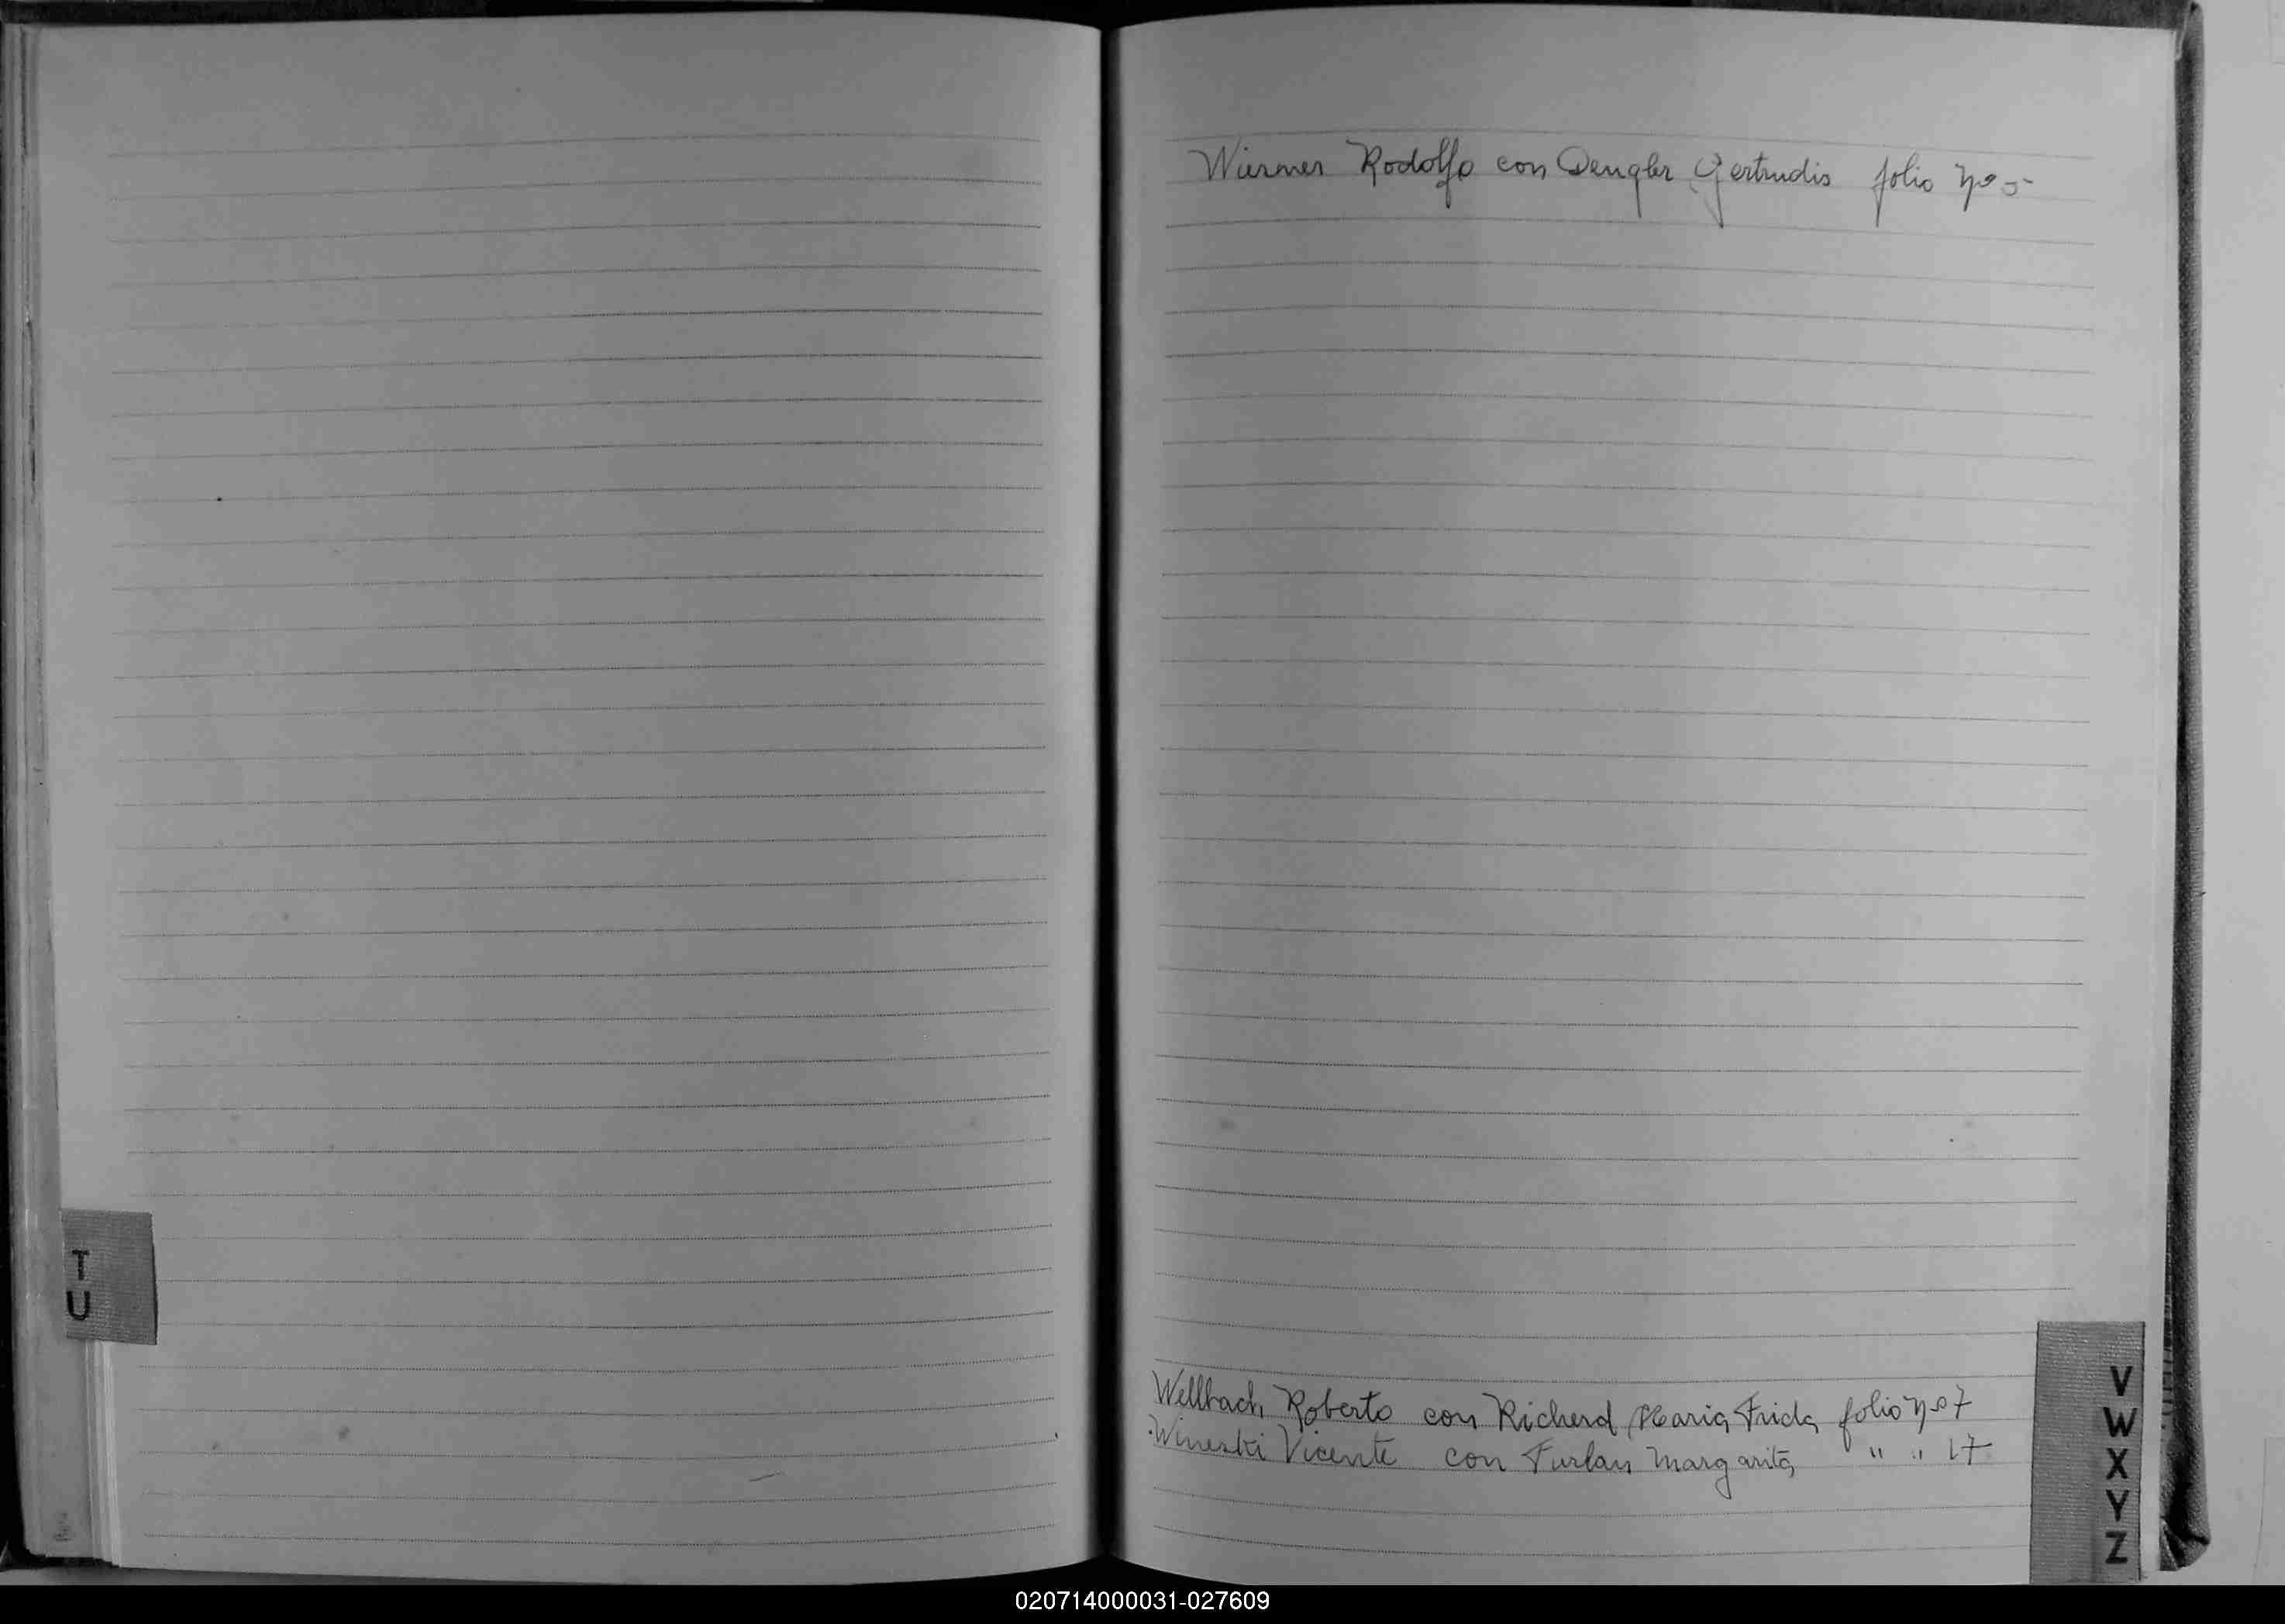 Wiesner Rodolfo con Dengler Gertrudis folio nº 5
T
U
Wellbach Roberto con Richerd Maria Frida folio nº 7
Wineski Vicente con Furlan Margarita " " 17
V
W
X
Y
Z
020714000031-027609